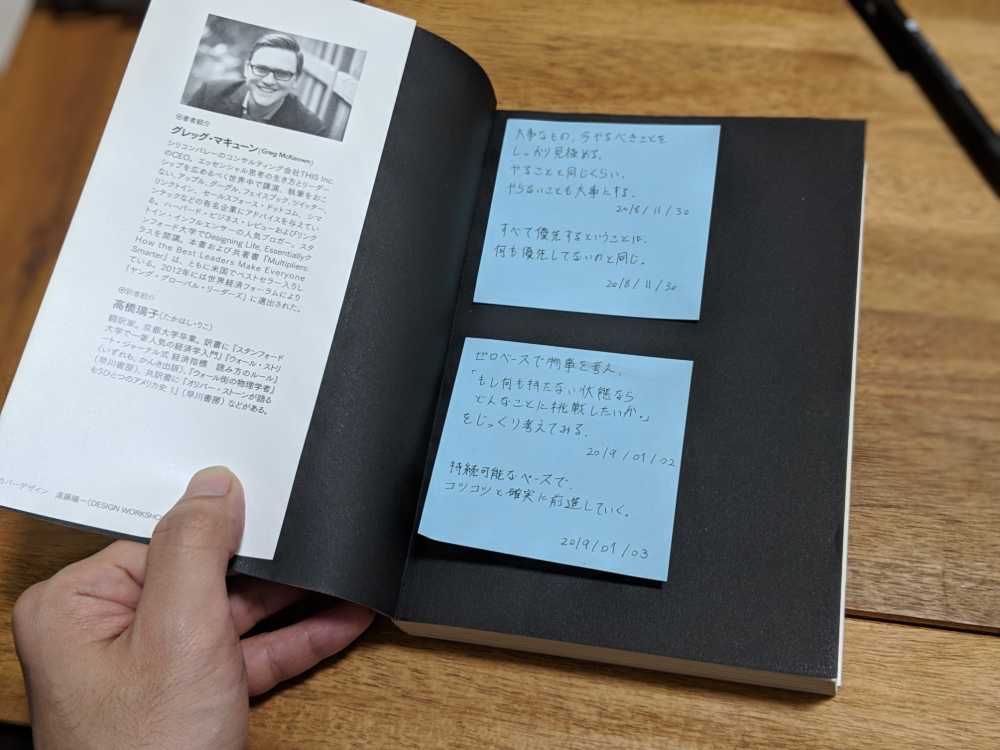 ◎著者紹介
グレッグ・マキューン(Greg McKeown)
シリコンバレーのコンサルティング会社THIS Inc.
のCEO。エッセンシャル思考の生き方とリーダー
シップを広めるべく世界中で講演、執筆をおこ
ない、アップル、グーグル、フェイスブック、ツイッター、
リンクトイン、セールスフォース・ドットコム、シマ
ンテックなどの有名企業にアドバイスを与えてい
る。ハーバード・ビジネス・レビューおよびリンク
トイン・インフルエンサーの人気ブロガー。スタ
ンフォード大学でDesigning Life, Essentiallyク
ラスを開講。本書および共著書「Multipliers:
How the Best Leaders Make Everyone
Smarter」は、ともに米国でベストセラー入りし
ている。2012年には世界経済フォーラムにより
「ヤング・グローバル・リーダーズ」に選出された。
◎訳者紹介
高橋璃子(たかはし・りこ)
翻訳家。京都大学卒業。訳書に『スタンフォード
大学で一番人気の経済学入門』『ウォール・ストリ
ート・ジャーナル式 経済指標 読み方のルール』
(いずれも、かんき出版)、『ウォール街の物理学者』
(早川書房)、共訳書に『オリバー・ストーンが語る
もうひとつのアメリカ史 1』(早川書房)などがある。
カバーデザイン 遠藤陽一(DESIGN WORKSHO
大事なもの、今やるべきことを
しっかり見極める。
やることと同じくらい、
やらないことも大事とする。
2018/11/30
すべて優先するということは、
何も優先してないのと同じ。
2018/11/30
ゼロベースで物事を考え、
「もし何も持たない状態なら
どんなことに挑戦したいか。」
をじっくり考えてみる。
2019/01/02
持続可能なペースで、
コツコツと確実に前進していく。
2019/01/03